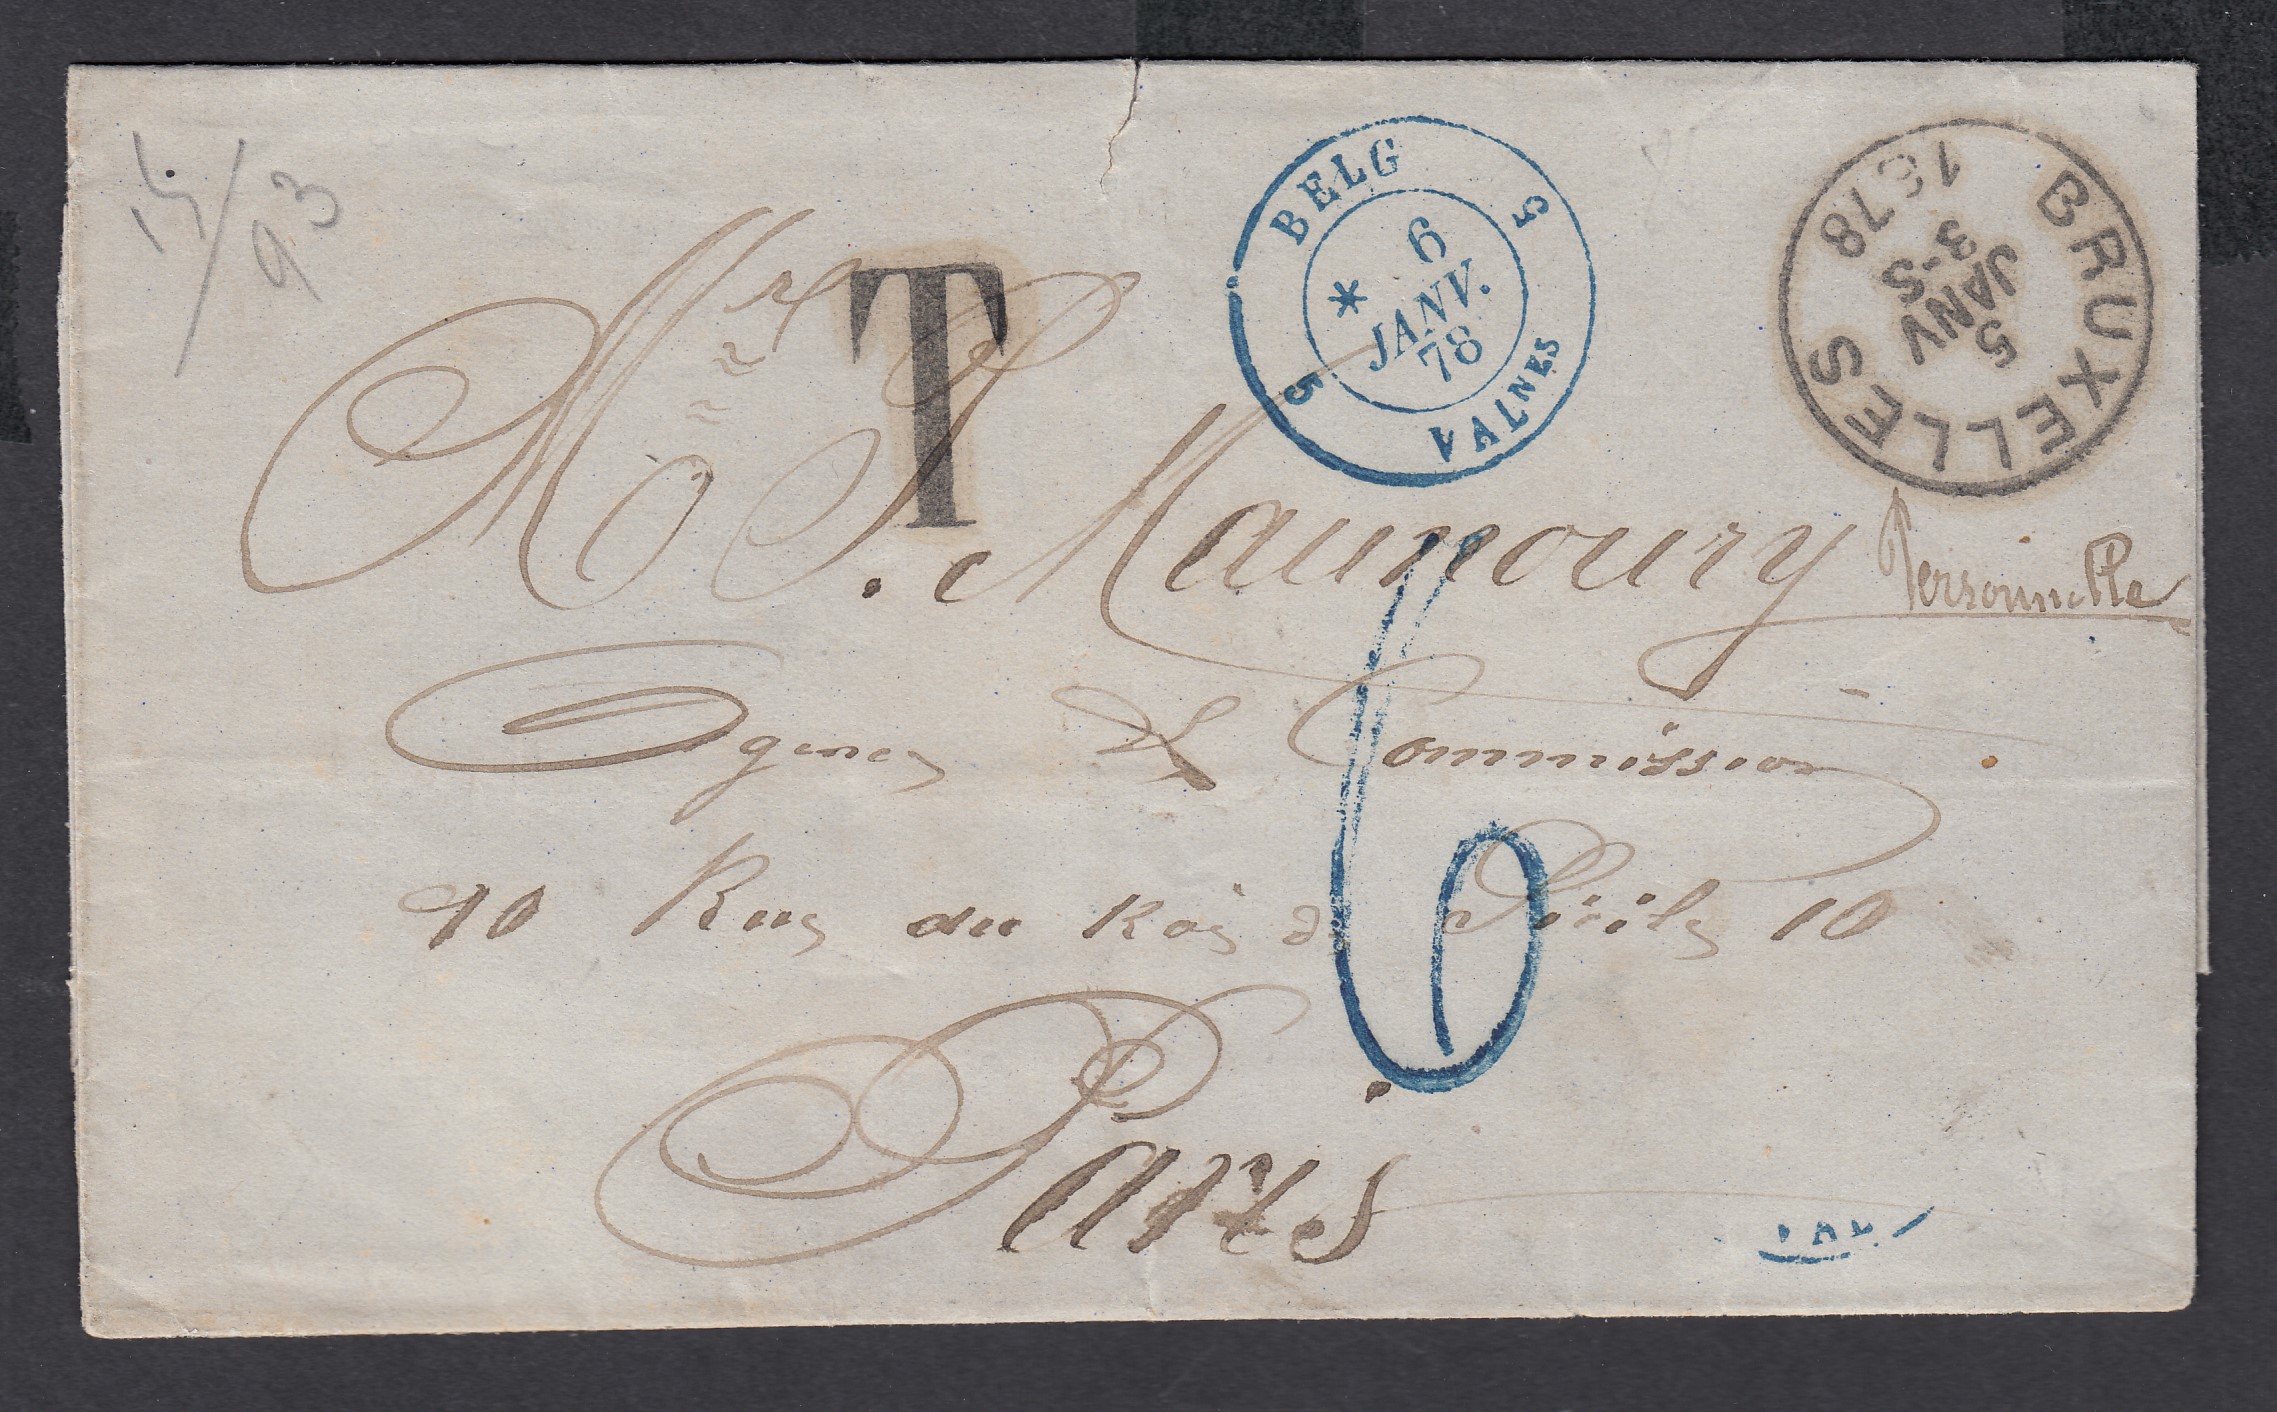 15/93
T
BELG
5 5
6
* JANV.
78
VALNES
BRUXELLES
1878
3-S
JANV
5
Mr L. Maunoury Personnelle
Agence & Commission
10 Rue du Roi de Sicile 10
6
Paris